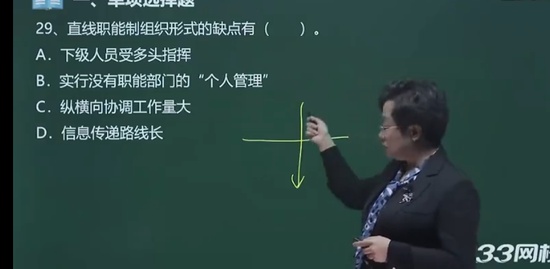 一、单项选择题
29、直线职能制组织形式的缺点有（　　）。
A．下级人员受多头指挥
B．实行没有职能部门的“个人管理”
C．纵横向协调工作量大
D．信息传递路线长
233网校